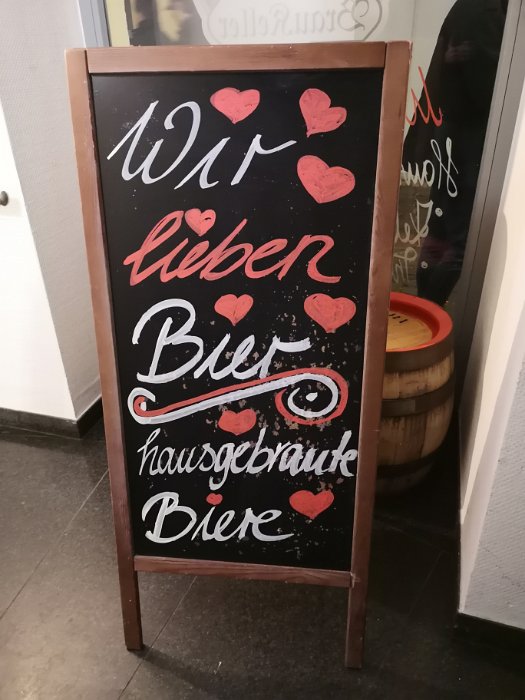 BrauKeller
Wir
lieben
Bier
hausgebraute
Biere